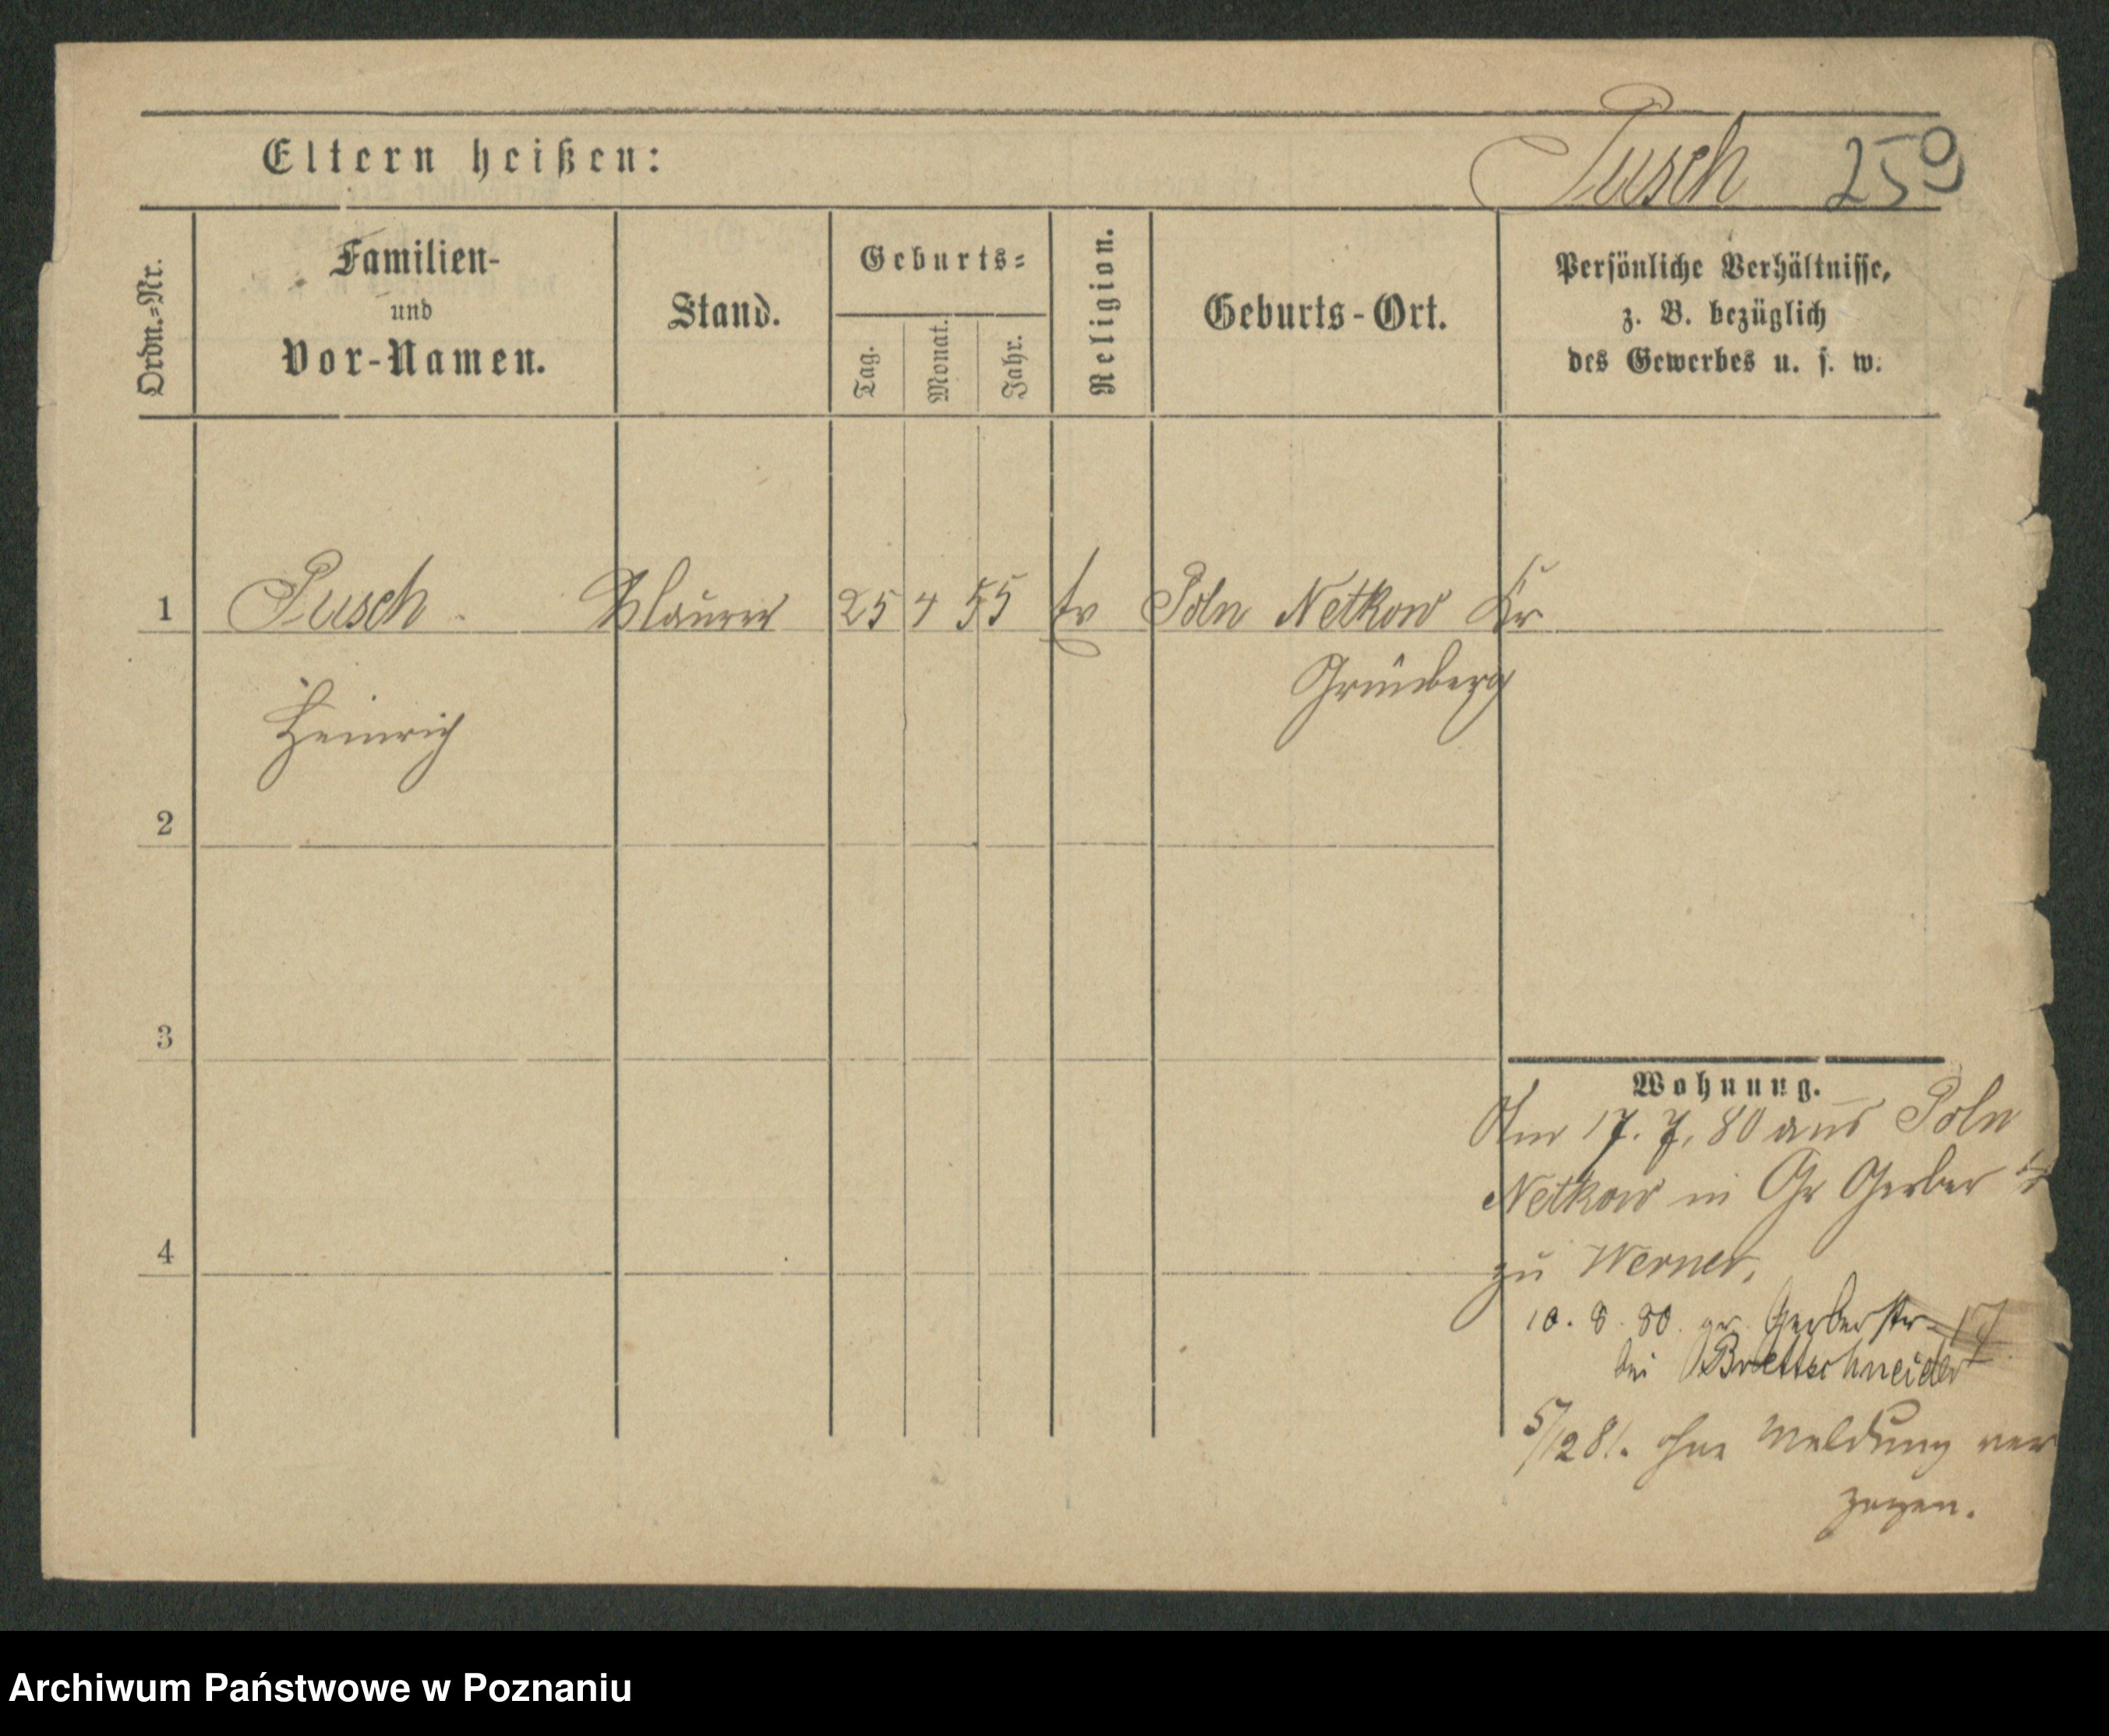 Eltern heißen:
Pusch 259
Ordn.=Nr.
Familien-
und
Vor-Namen.
Stand.
Geburts=
Tag.
Monat.
Jahr.
Religion.
Geburts-Ort.
Persönliche Verhältnisse,
z. B. bezüglich
des Gewerbes u. s. w.
1 Pusch Maurer 25 4 55 Ev Poln Netkow Kr
Grünberg
Heinrich
2
3
Wohnung.
Am 17. 7. 80 aus Poln
Netkow in Gr Gerber
4
zu Werner.
10. 8. 80. gr. Gerberstr. 17
bei Brettschneider
5/12 81. ohne Meldung ver
zogen.
Archiwum Państwowe w Poznaniu